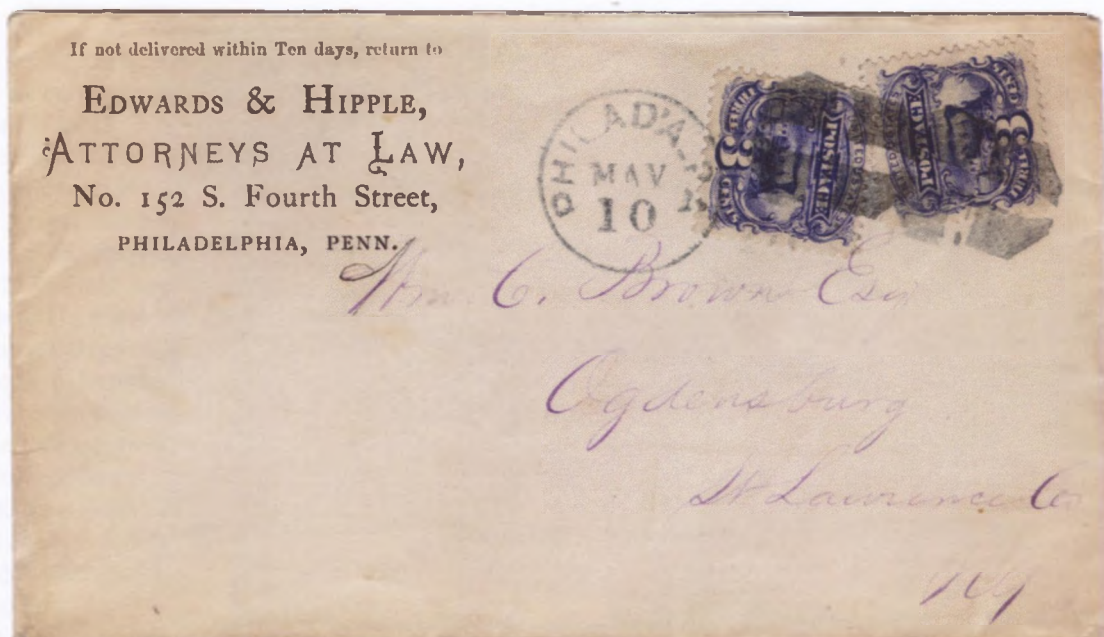 If not delivered within Ten days, return to
EDWARDS & HIPPLE,
ATTORNEYS AT LAW,
No. 152 S. Fourth Street,
PHILADELPHIA, PENN.
PHILAD'A. PA
MAY
10
THREE 3 CENTS
POSTAGE
THREE 3 CENTS
POSTAGE
Wm. C. Brown Esq
Ogdensburg
St Lawrence Co
NY